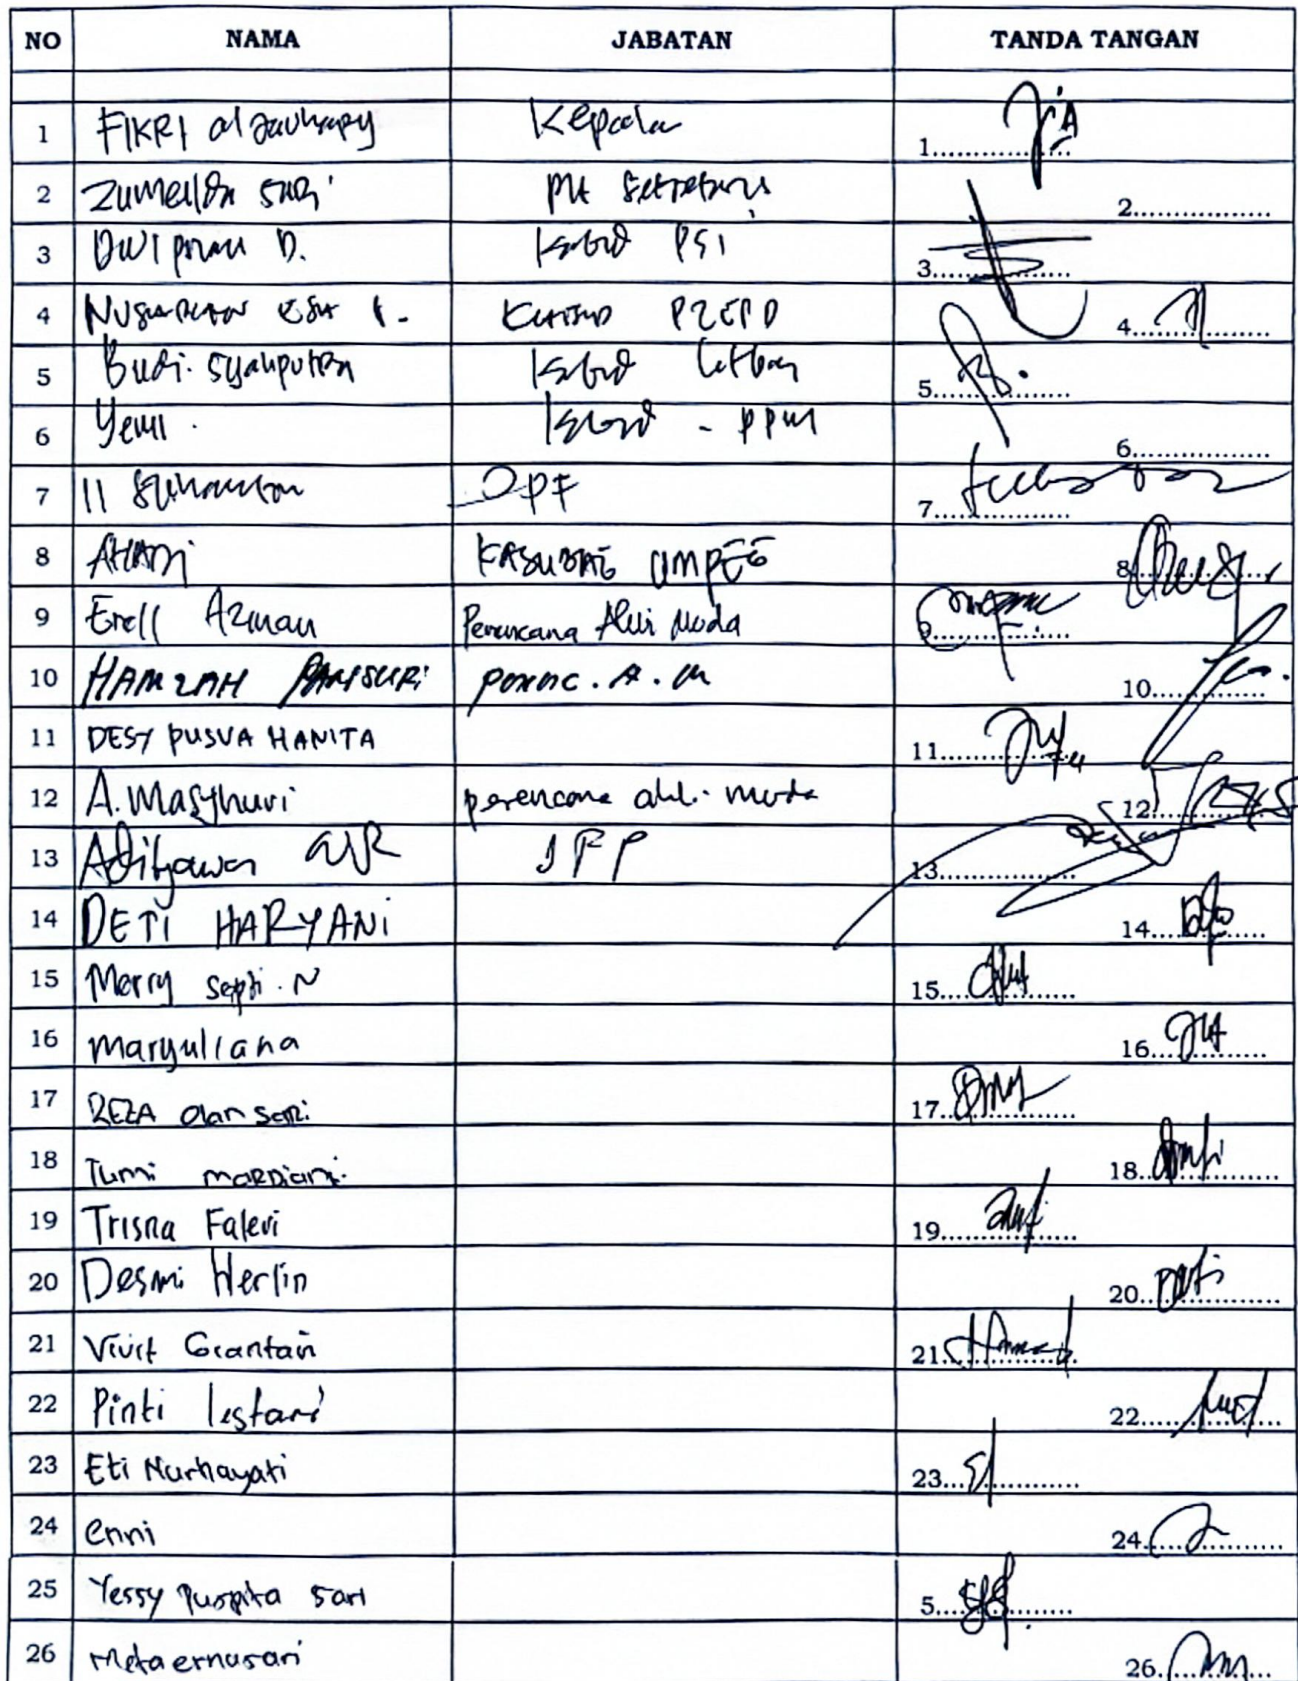 NO NAMA JABATAN TANDA TANGAN
1 FIKRI aljauhary Kepala 1
2 Zumellda sari Plt Sekretaris 2
3 Dwi D. Kabid PSI 3
4 Kabid P2EPD 4
5 Budi. Syahputra Kabid Litbang 5
6 Yemi. Kabid - PPM 6
7 7
8 AHADI KASUBAG UMPEG 8
9 Erell Azman Perencana Ahli Muda 9
10 HAMZAH PANSURI A. M 10
11 DESY PUSVA HANITA 11
12 A. Masyhuri perencana ahli muda 12
13 Adityawan JFP 13
14 DETI HARYANI 14
15 Merry Septi. N 15
16 Maryuliana 16
17 REZA olan sari 17
18 Tumi MARDIANI. 18
19 Trisna Falevi 19
20 Desmi Herlin 20
21 Vivit 21
22 Pinti lestari 22
23 Eti Nurhayati 23
24 enni 24
25 Yessy Puspita Sari 5
26 Meta ernusari 26